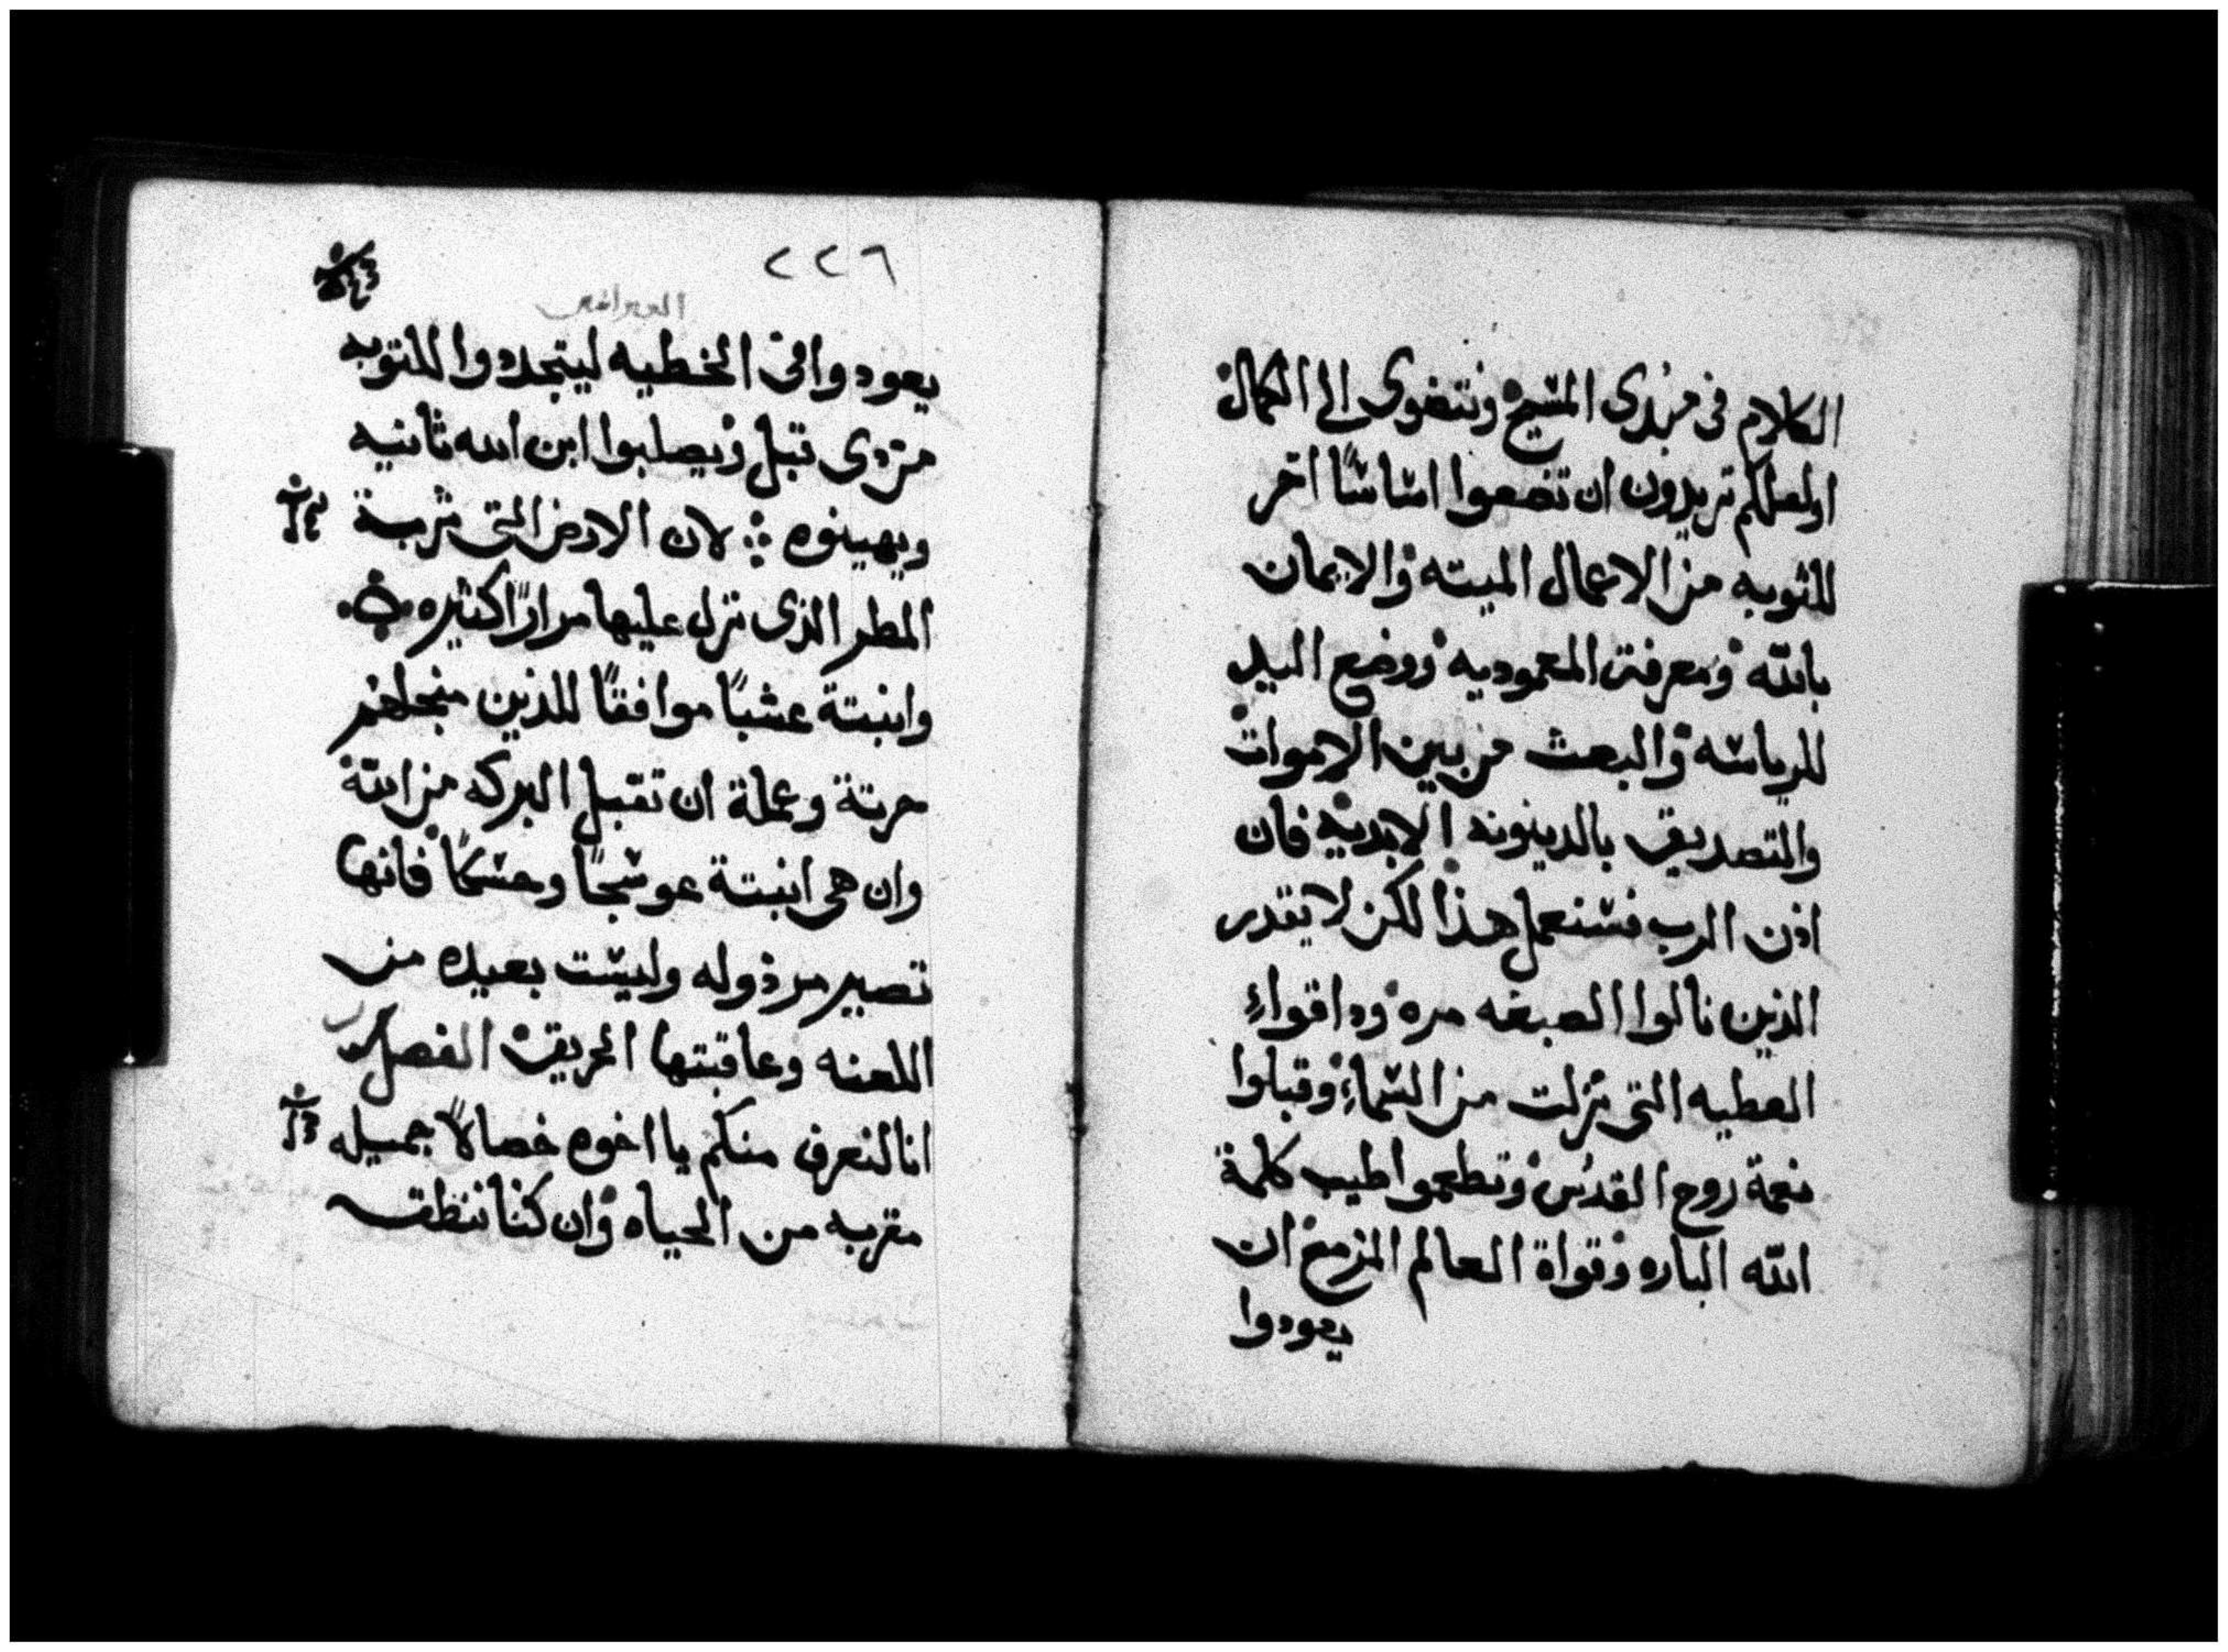 الكلام في مبدى المسيح ونتضوى الى الكمال
اولعلكم تريدون ان تضعوا اساسًا اخر
للثوبه من الاعمال الميته والايمان
بالله ومعرفة المعموديه ووضع اليد
للرياسه والبعث من بين الاموات
والتصديق بالدينونه الابديه فان
اذن الرب فسنعمل هذا لكن لا يقدر
الذين نالوا الصبغه مره وداقواء
العطيه التى نزلت من السماء وقبلوا
نعمة روح القدس وتطعموا طيب كلمة
الله الباره وقواة العالم المزمع ان
يعودوا
٢٢٦
العبرانيين
يعودوا فى الخطيه ليتجددوا للتوبه
من دى قبل ويصلبوا ابن الله ثانيه
ويهينوه لان الارض التى شربة
المطر الذى نزل عليها مرارًا كثيره
وانبتة عشبًا موافقًا للذين من اجلهم
حرتة وعملة ان تقبل البركه من الله
وان هى انبتة عوسجًا وحسكًا فانها
تصير مرذوله وليست بعيده من
اللعنه وعاقبتها الحريق الفصل
انا لنعرف منكم يا اخوه خصالًا جميله
مقربه من الحياه وان كنا ننطق